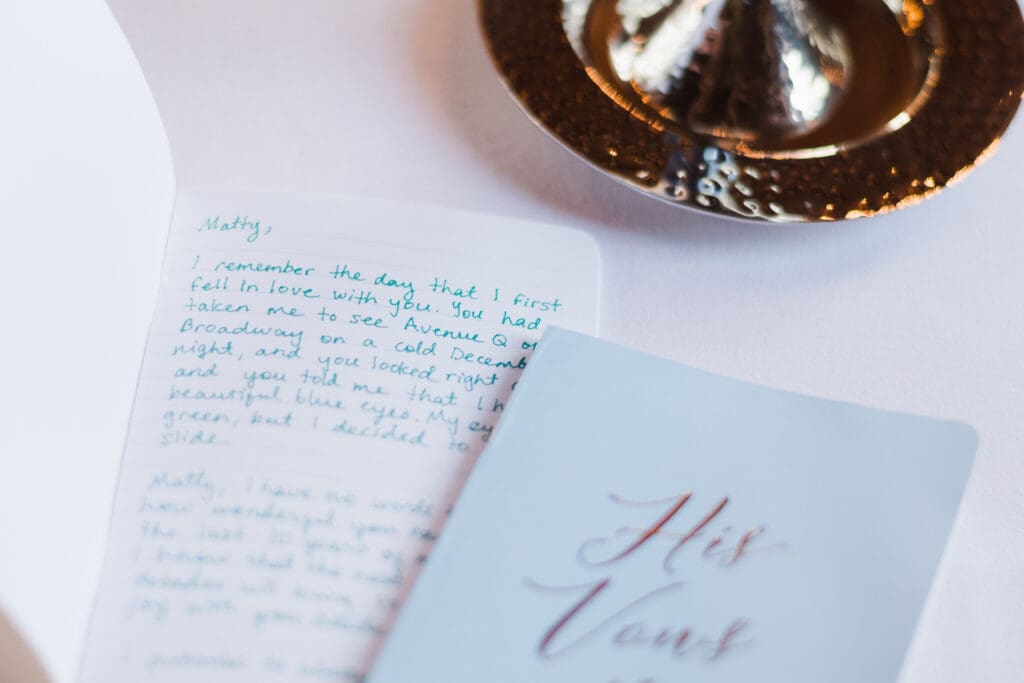 Matty,
I remember the day that I first
fell in love with you. You had
taken me to see Avenue Q
Broadway on a cold
night, and you looked right
and you told me that I
beautiful blue eyes. My
green, but I decided to
slide.
Matty, I have no words
how wonderful you
the last 10 years of
I know that the
decades will bring
joy with you
I
His
Vows